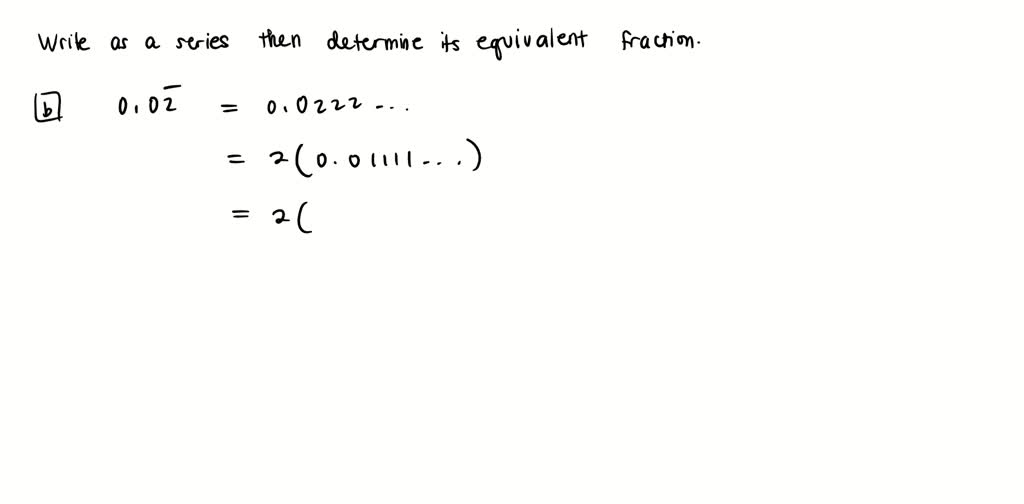 Write as a series then determine its equivalent fraction.
b 0.02̅ = 0.0222...
= 2(0.01111...)
= 2(